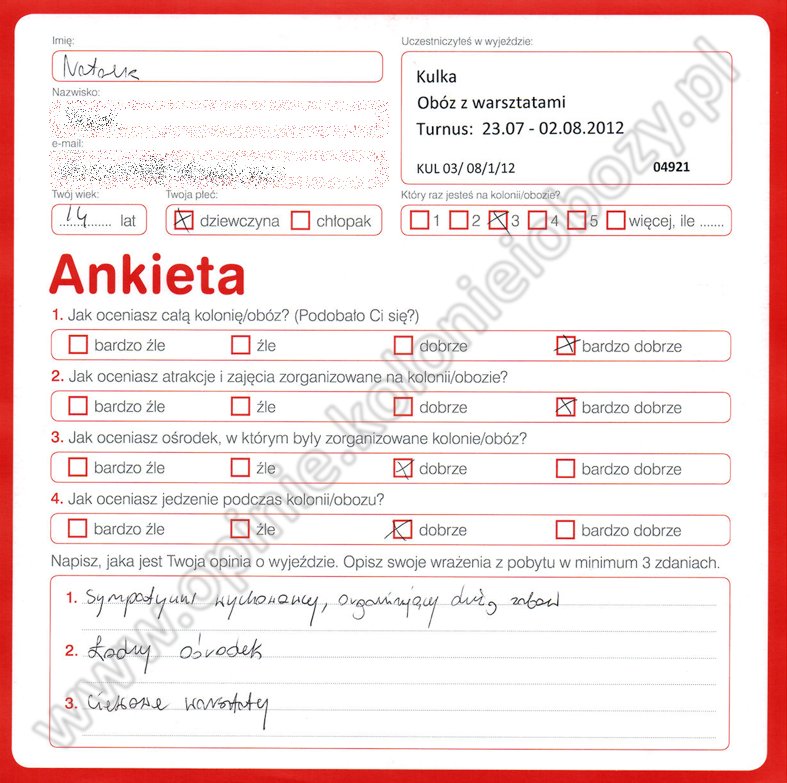 Imię:
Natalia
Nazwisko:
e-mail:
Twój wiek:
14 lat
Twoja płeć:
dziewczyna chłopak
Uczestniczyłeś w wyjeździe:
Kulka
Obóz z warsztatami
Turnus: 23.07 - 02.08.2012
KUL 03/ 08/1/12 04921
Który raz jesteś na kolonii/obozie?
1 2 3 4 5 więcej, ile .......
Ankieta
1. Jak oceniasz całą kolonię/obóz? (Podobało Ci się?)
bardzo źle źle dobrze bardzo dobrze
2. Jak oceniasz atrakcje i zajęcia zorganizowane na kolonii/obozie?
bardzo źle źle dobrze bardzo dobrze
3. Jak oceniasz ośrodek, w którym były zorganizowane kolonie/obóz?
bardzo źle źle dobrze bardzo dobrze
4. Jak oceniasz jedzenie podczas kolonii/obozu?
bardzo źle źle dobrze bardzo dobrze
Napisz, jaka jest Twoja opinia o wyjeździe. Opisz swoje wrażenia z pobytu w minimum 3 zdaniach.
1. Sympatyczni wychowawcy, organizujący dużo zabaw
2. Ładny ośrodek
3. Ciekawe warsztaty
www.opinie.kolonieiobozy.pl